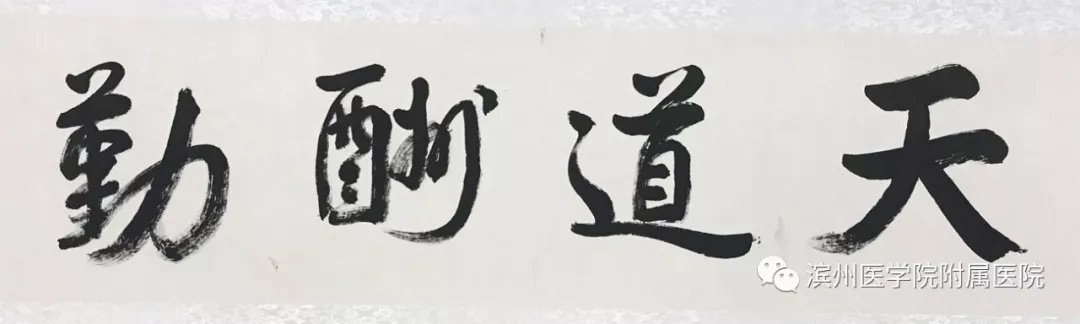 天道酬勤
滨州医学院附属医院